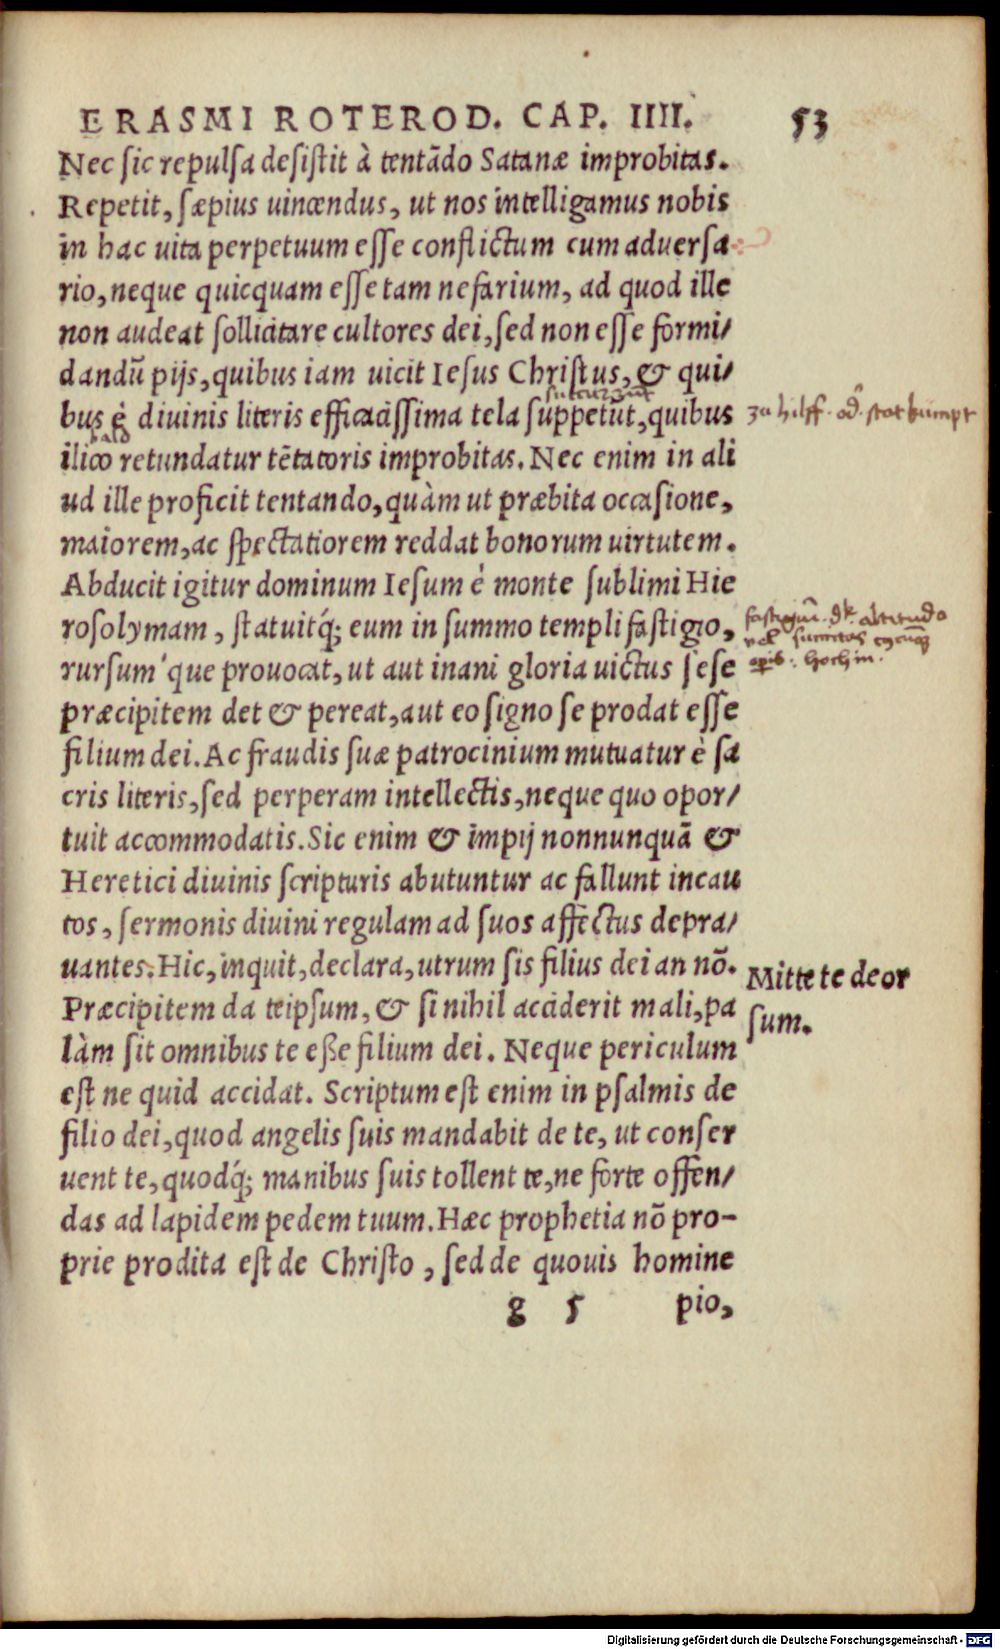 ERASMI ROTEROD. CAP. IIII. 53
Nec sic repulsa desistit à tentādo Satanæ improbitas.
Repetit, sæpius uincendus, ut nos intelligamus nobis
in hac uita perpetuum esse conflictum cum aduersa
rio, neque quicquam esse tam nefarium, ad quod ille
non audeat sollicitare cultores dei, sed non esse formi/
dandū pijs, quibus iam uicit Iesus Christus, & qui/
succurrunt
bus è diuinis literis efficacissima tela suppetūt, quibus
zu hilff. od stat kümpt
bald
ilico retundatur tētatoris improbitas. Nec enim in ali
ud ille proficit tentando, quàm ut præbita occasione,
maiorem, ac spectatiorem reddat bonorum uirtutem.
Abducit igitur dominum Iesum è monte sublimi Hie
rosolymam, statuitq́; eum in summo templi fastigio,
rursum' que prouocat, ut aut inani gloria uictus sese
præcipitem det & pereat, aut eo signo se prodat esse
filium dei. Ac fraudis suæ patrocinium mutuatur è sa
cris literis, sed perperam intellectis, neque quo opor/
tuit accommodatis. Sic enim & impij nonnunquā &
Heretici diuinis scripturis abutuntur ac fallunt incau
tos, sermonis diuini regulam ad suos affectus depra/
uantes. Hic, inquit, declara, utrum sis filius dei an nō.
Præcipitem da teipsum, & si nihil acciderit mali, pa
làm sit omnibus te eße filium dei. Neque periculum
est ne quid accidat. Scriptum est enim in psalmis de
filio dei, quod angelis suis mandabit de te, ut conser
uent te, quodq́; manibus suis tollent te, ne forte offen/
das ad lapidem pedem tuum. Hæc prophetia nō pro-
prie prodita est de Christo, sed de quouis homine
g 5 pio,
fastigiū. altitudo
vel summitas
hoch
Mitte te deor
sum.
Digitalisierung gefördert durch die Deutsche Forschungsgemeinschaft - DFG